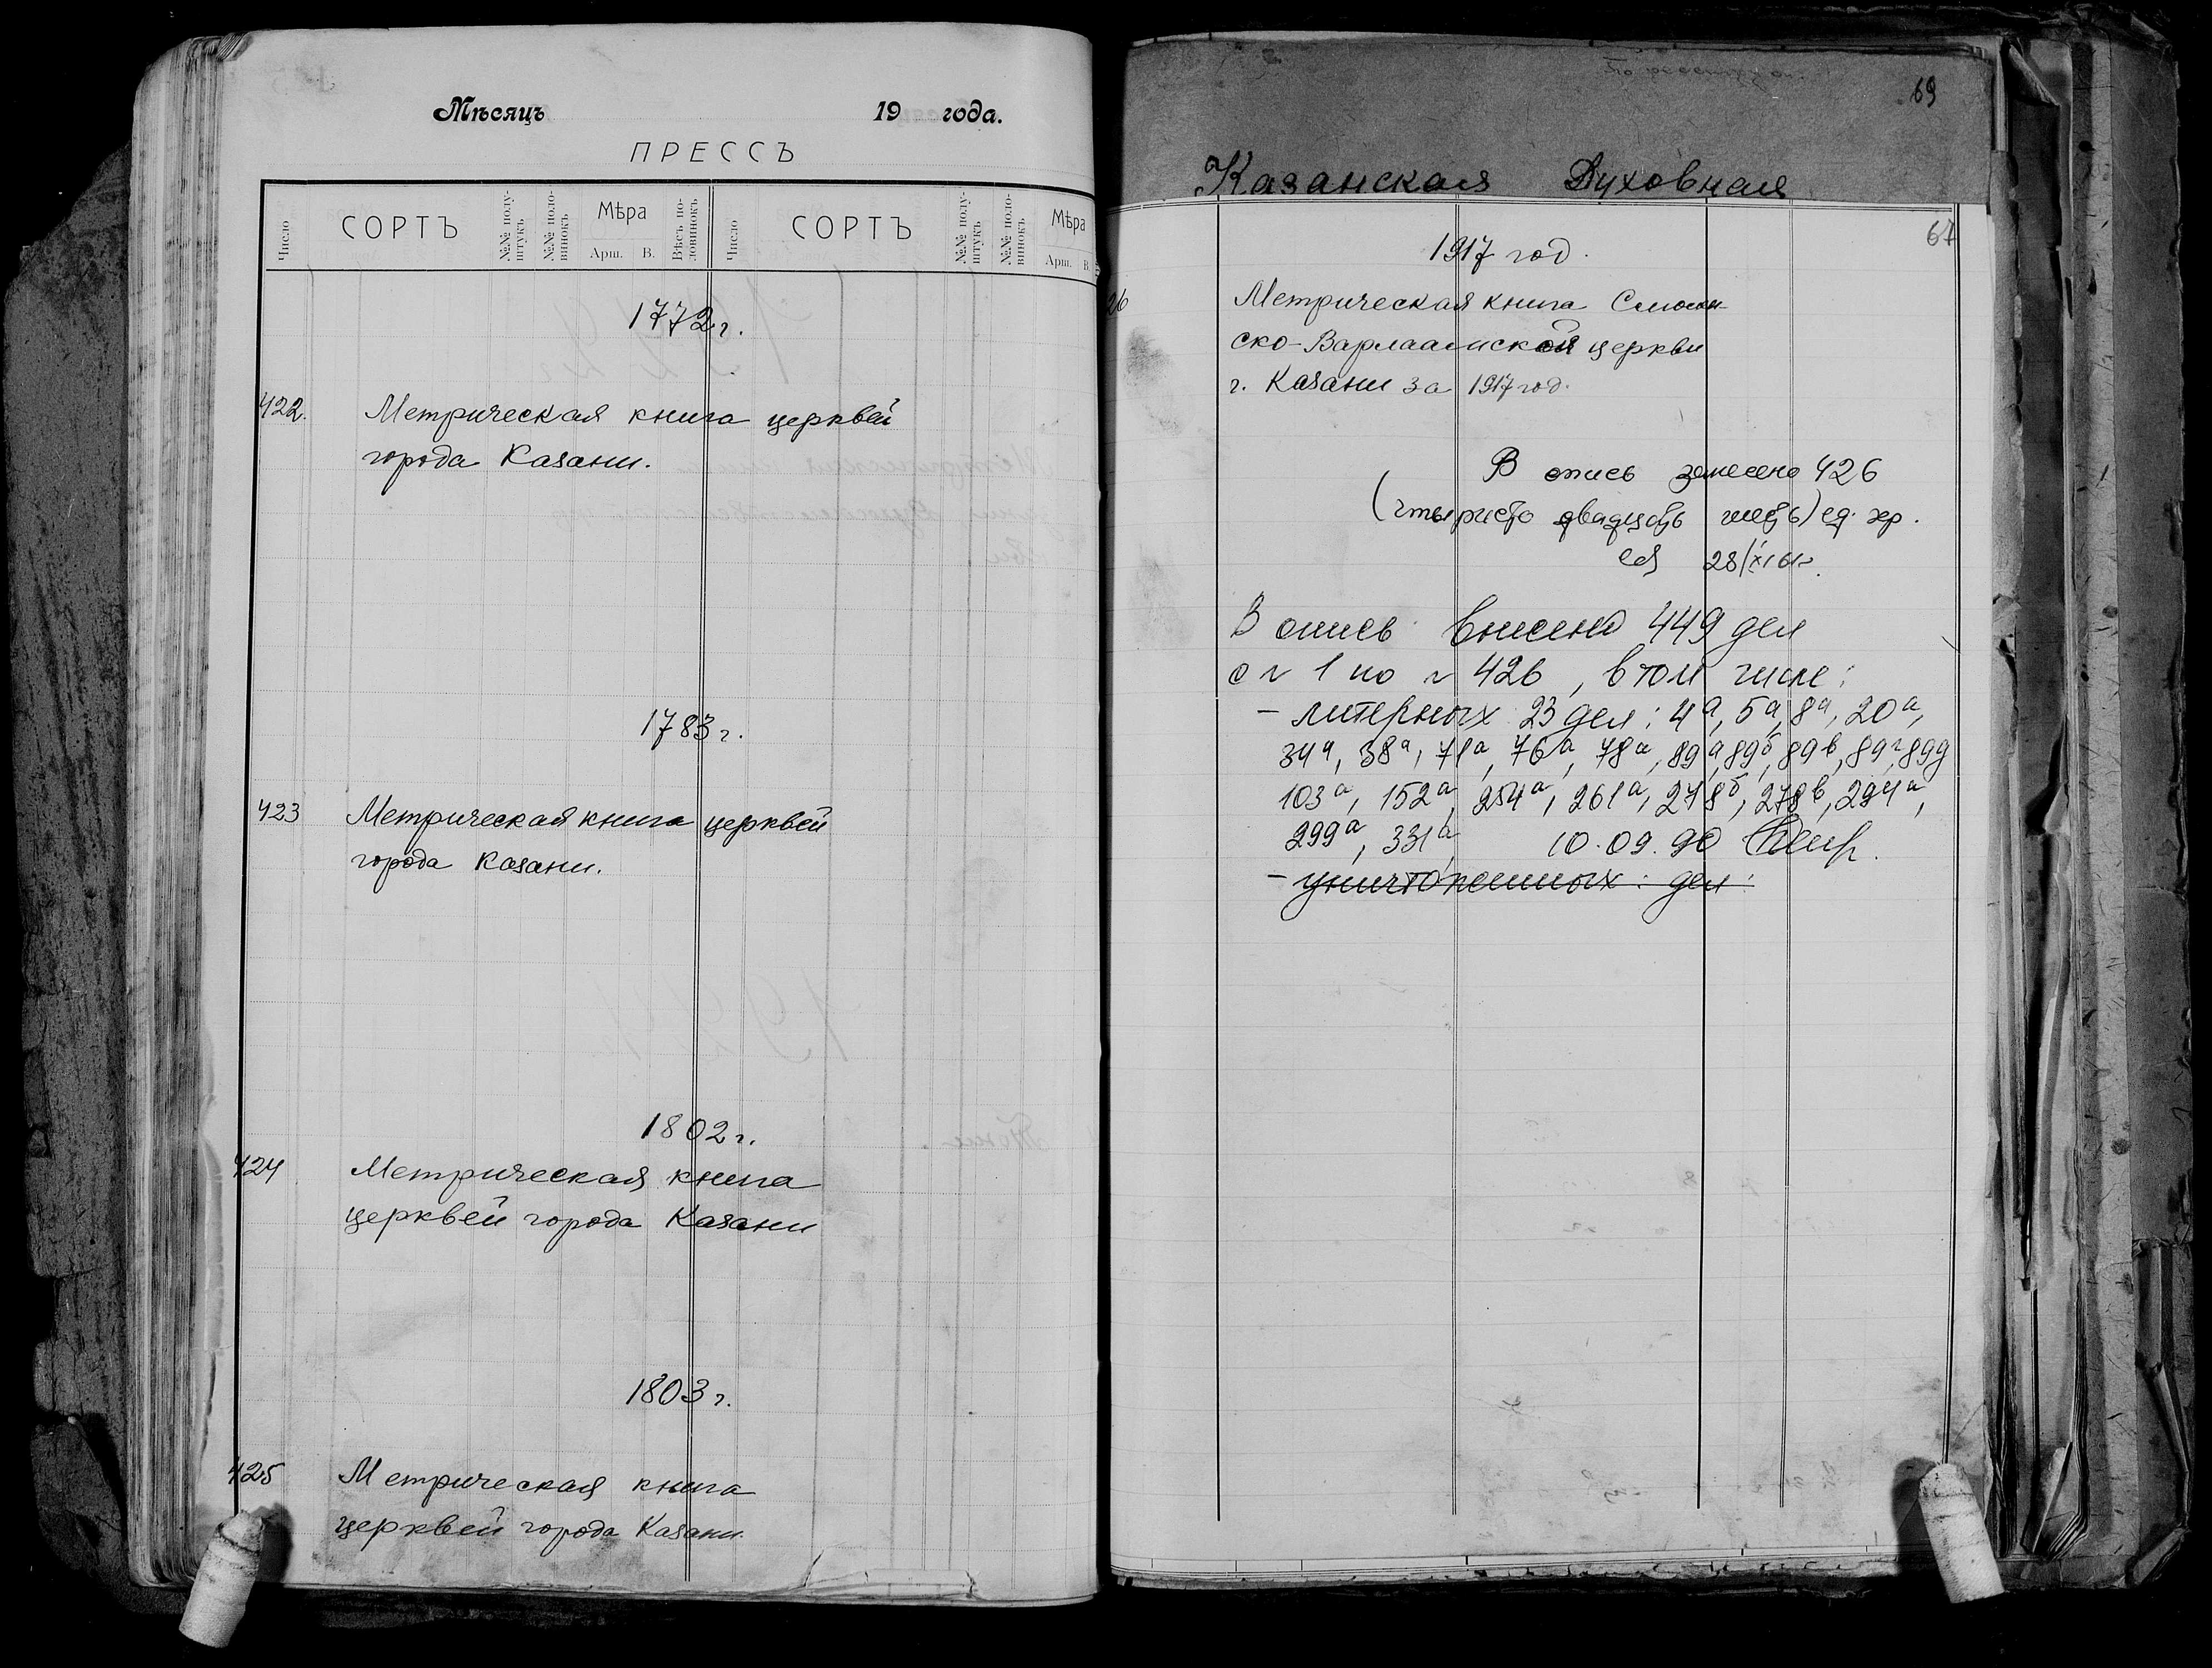 Мѣсяцъ 19 года.
ПРЕССЪ
Число СОРТЪ №№ полу-штукъ №№ поло-винокъ Мѣра Арш. В. Вѣсъ по-ловинокъ Число СОРТЪ №№ полу-штукъ №№ поло-винокъ Мѣра Арш. В.
1772 г.
422. Метрическая книга церквей
города Казани.
1783 г.
423 Метрическая книга церквей
города Казани.
1802 г.
424 Метрическая книга
церквей города Казани
1803 г.
425 Метрическая книга
церквей города Казани.
69
Казанская Духовная
67
1917 год.
26 Метрическая книга Смолен-
ско-Варлаамской церкви
г. Казани за 1917 год.
В опись занесено 426
(четыреста двадцать шесть) ед. хр.
28/XI 61г.
В опись внесено 449 дел
с № 1 по № 426, в том числе:
– литерных 23 дел: 4а, 5а, 8а, 20а,
34а, 38а, 71а, 76а, 78а, 89а, 89б, 89в, 89г, 89д
103а, 152а, 254а, 261а, 278б, 278в, 294а,
299а, 331а 10.09.90
– уничтоженных: дел: